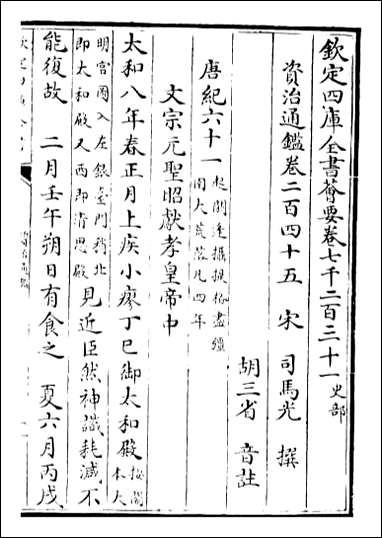 欽定四庫全書薈要卷七千二百二十一史部
資治通鑑卷二百四十五 宋 司馬光 撰
胡三省 音註
唐紀六十一起閼逢攝提格盡彊
圉大荒落凡四年
文宗元聖昭獻孝皇帝中
太和八年春正月上疾小瘳丁巳御太和殿按閣
本大
明宮圖入左銀臺門稍北
即太和殿又西即清思殿見近臣然神識耗減不
能復故 二月壬午朔日有食之 夏六月丙戌